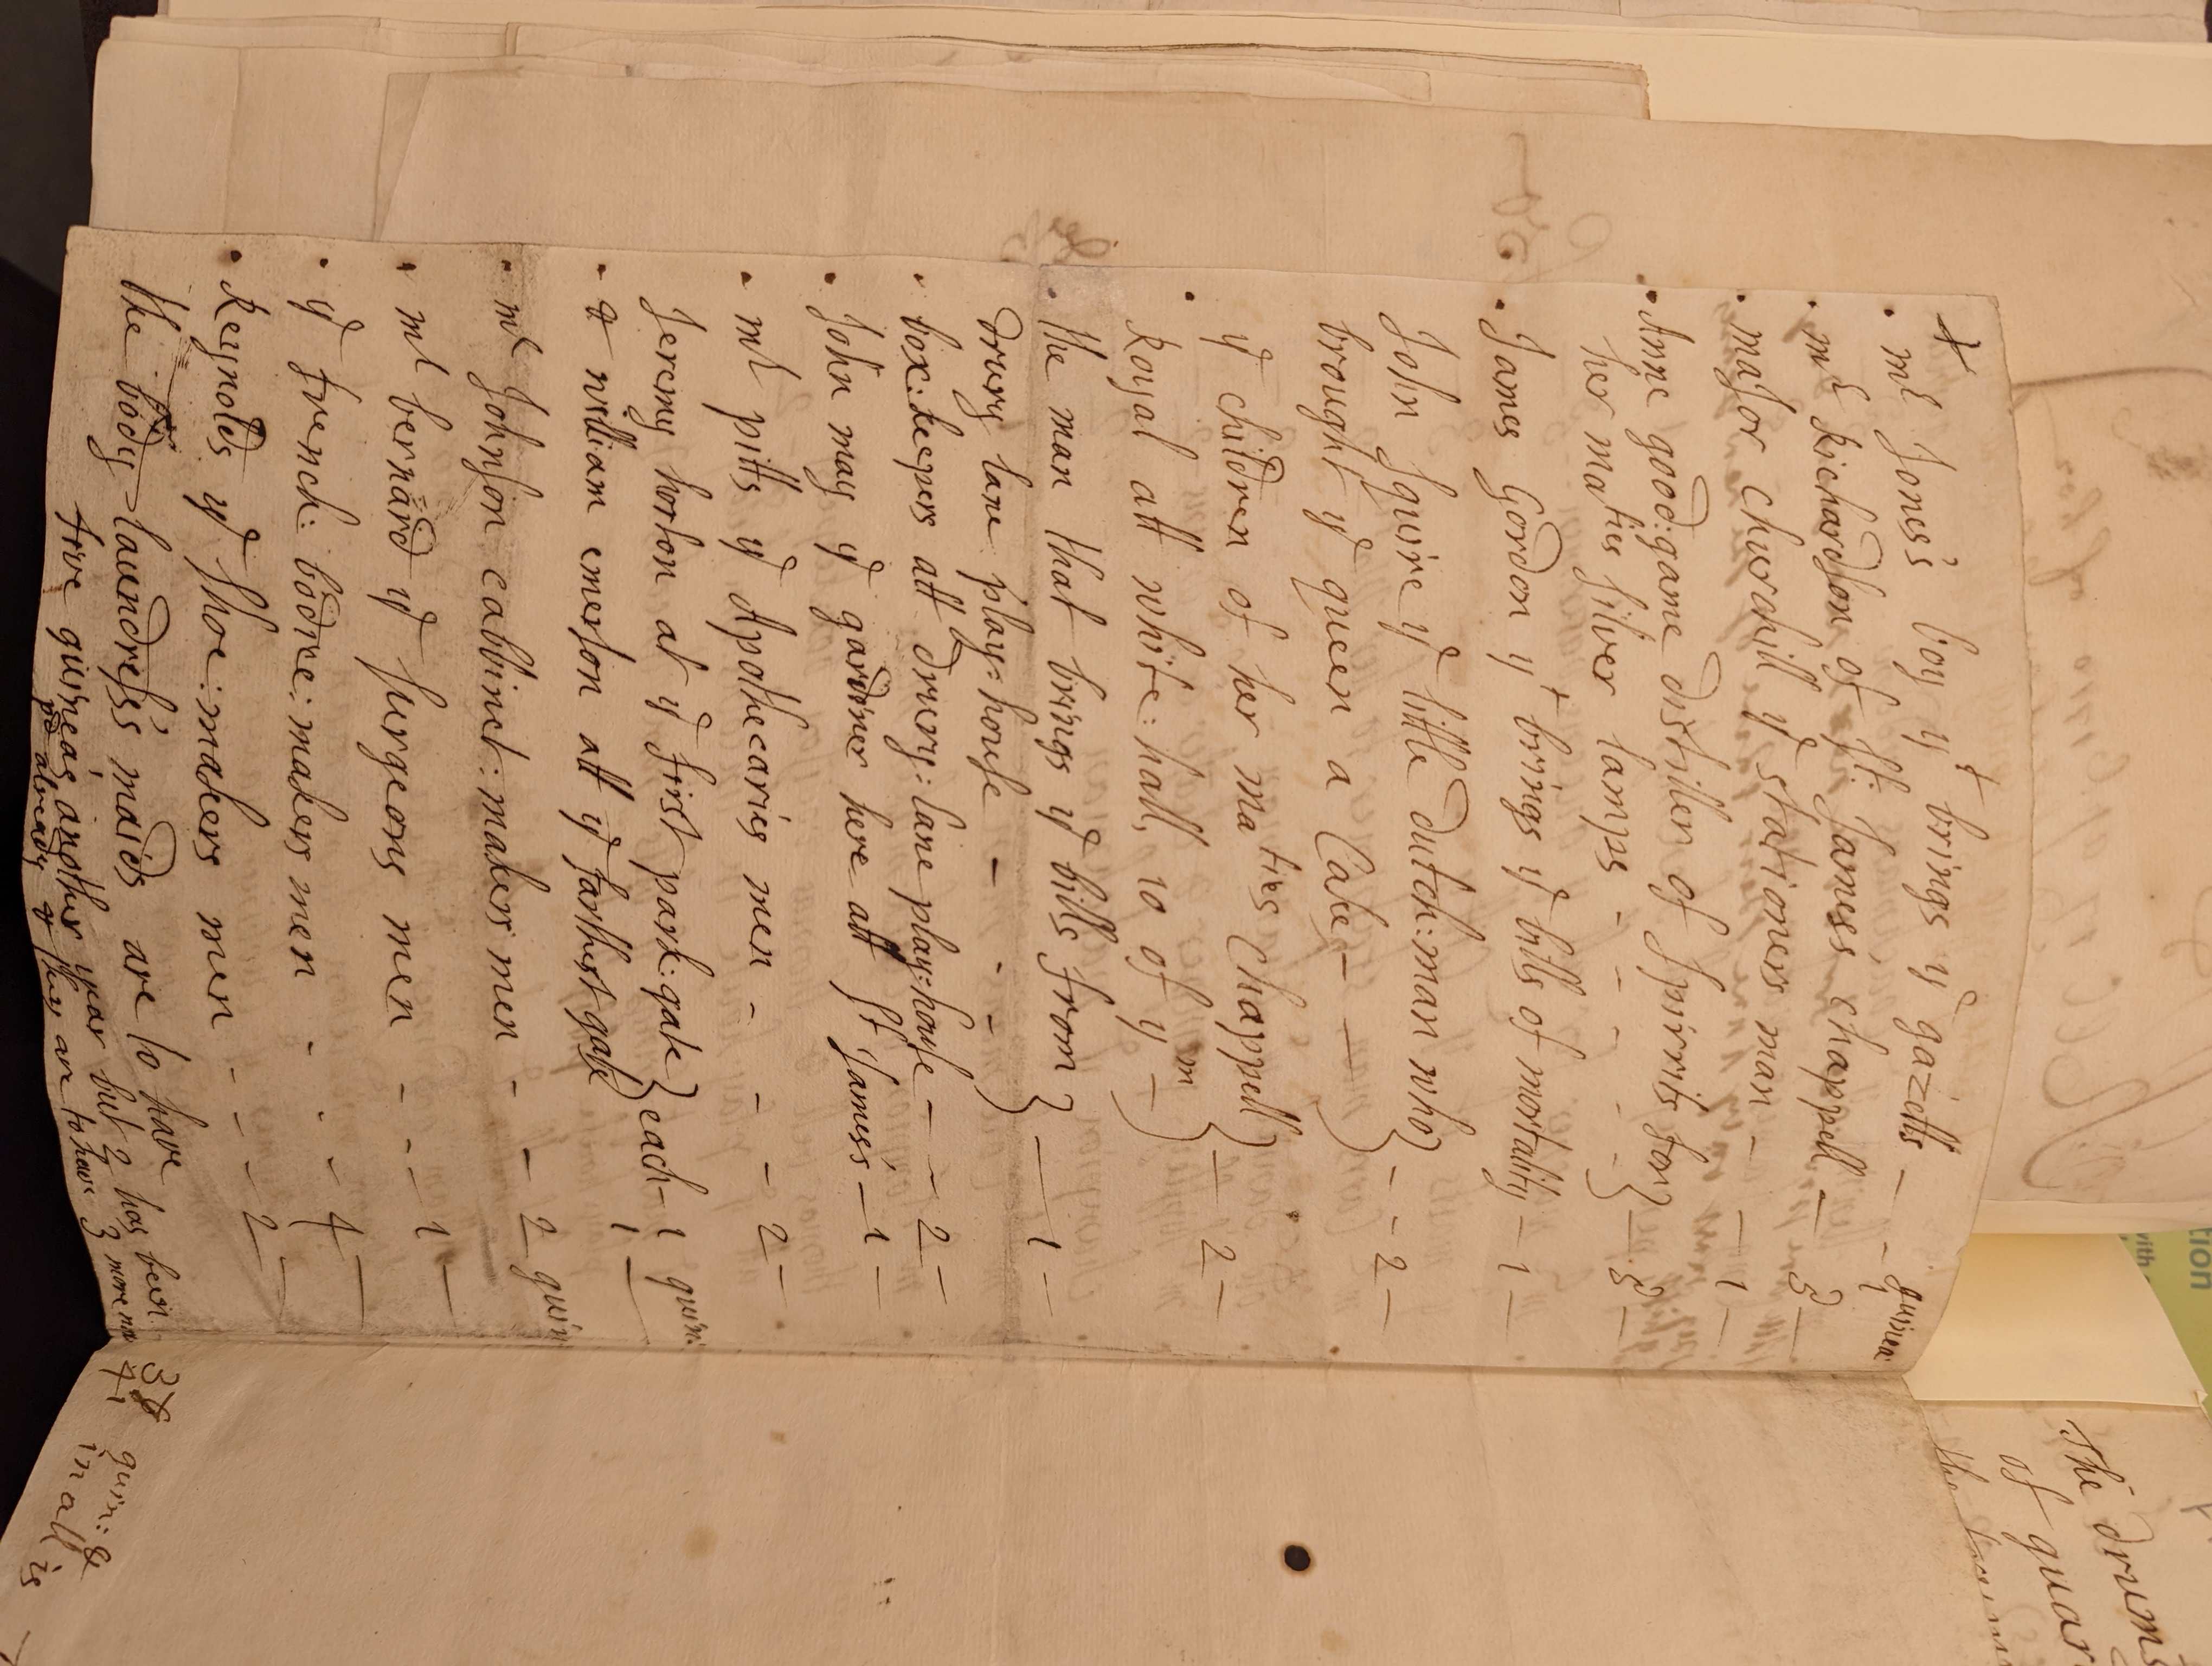 +
mr Jones's boy yt brings ye gazetts — - 1 guinea
mr Richardson of St: James's chappell — 3 —
major churchill ye stationers man - — 1 —
Anne good:game distiller of spirrits for }
her maties silver lamps - - - - — 3 —
James Gordon yt brings ye bills of mortality — 1 —
John squire ye little dutch:man who }
brought ye queen a Cake — — - - 2 —
ye children of her maties Chappell }
Royal att white:hall, 10 of ym — — 2 —
the man that brings ye bills from }
drury lane play:house — - - — 1 —
box:keepers att drury:lane play:house — - - 2 —
John may ye gardner here att St James's — 1 —
mr pitts ye Apothecaries men - - — - 2 —
Jeremy horton at ye first park:gate } each — 1 guin:
& william emerson att ye farthest gate 1 —
mr Johnson cabbinet:makers men - — 2 guin
mr bernard ye surgeons men — - - — 1 —
ye french: bodice:makers men - . - 4 —
Reynolds ye shoe:makers men - - — - 2 —
the body-laundress's maids are to have
five guineas another year but 2 has been
pd already & they are to have 3 more now
38 guin: &
41 in all is
The drums
of guar
the